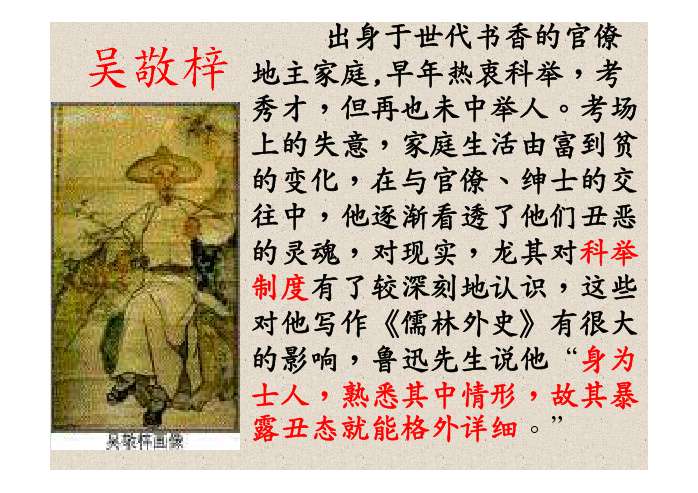 吴敬梓
出身于世代书香的官僚
地主家庭,早年热衷科举，考
秀才，但再也未中举人。考场
上的失意，家庭生活由富到贫
的变化，在与官僚、绅士的交
往中，他逐渐看透了他们丑恶
的灵魂，对现实，龙其对科举
制度有了较深刻地认识，这些
对他写作《儒林外史》有很大
的影响，鲁迅先生说他“身为
士人，熟悉其中情形，故其暴
露丑态就能格外详细。”
吴敬梓画像